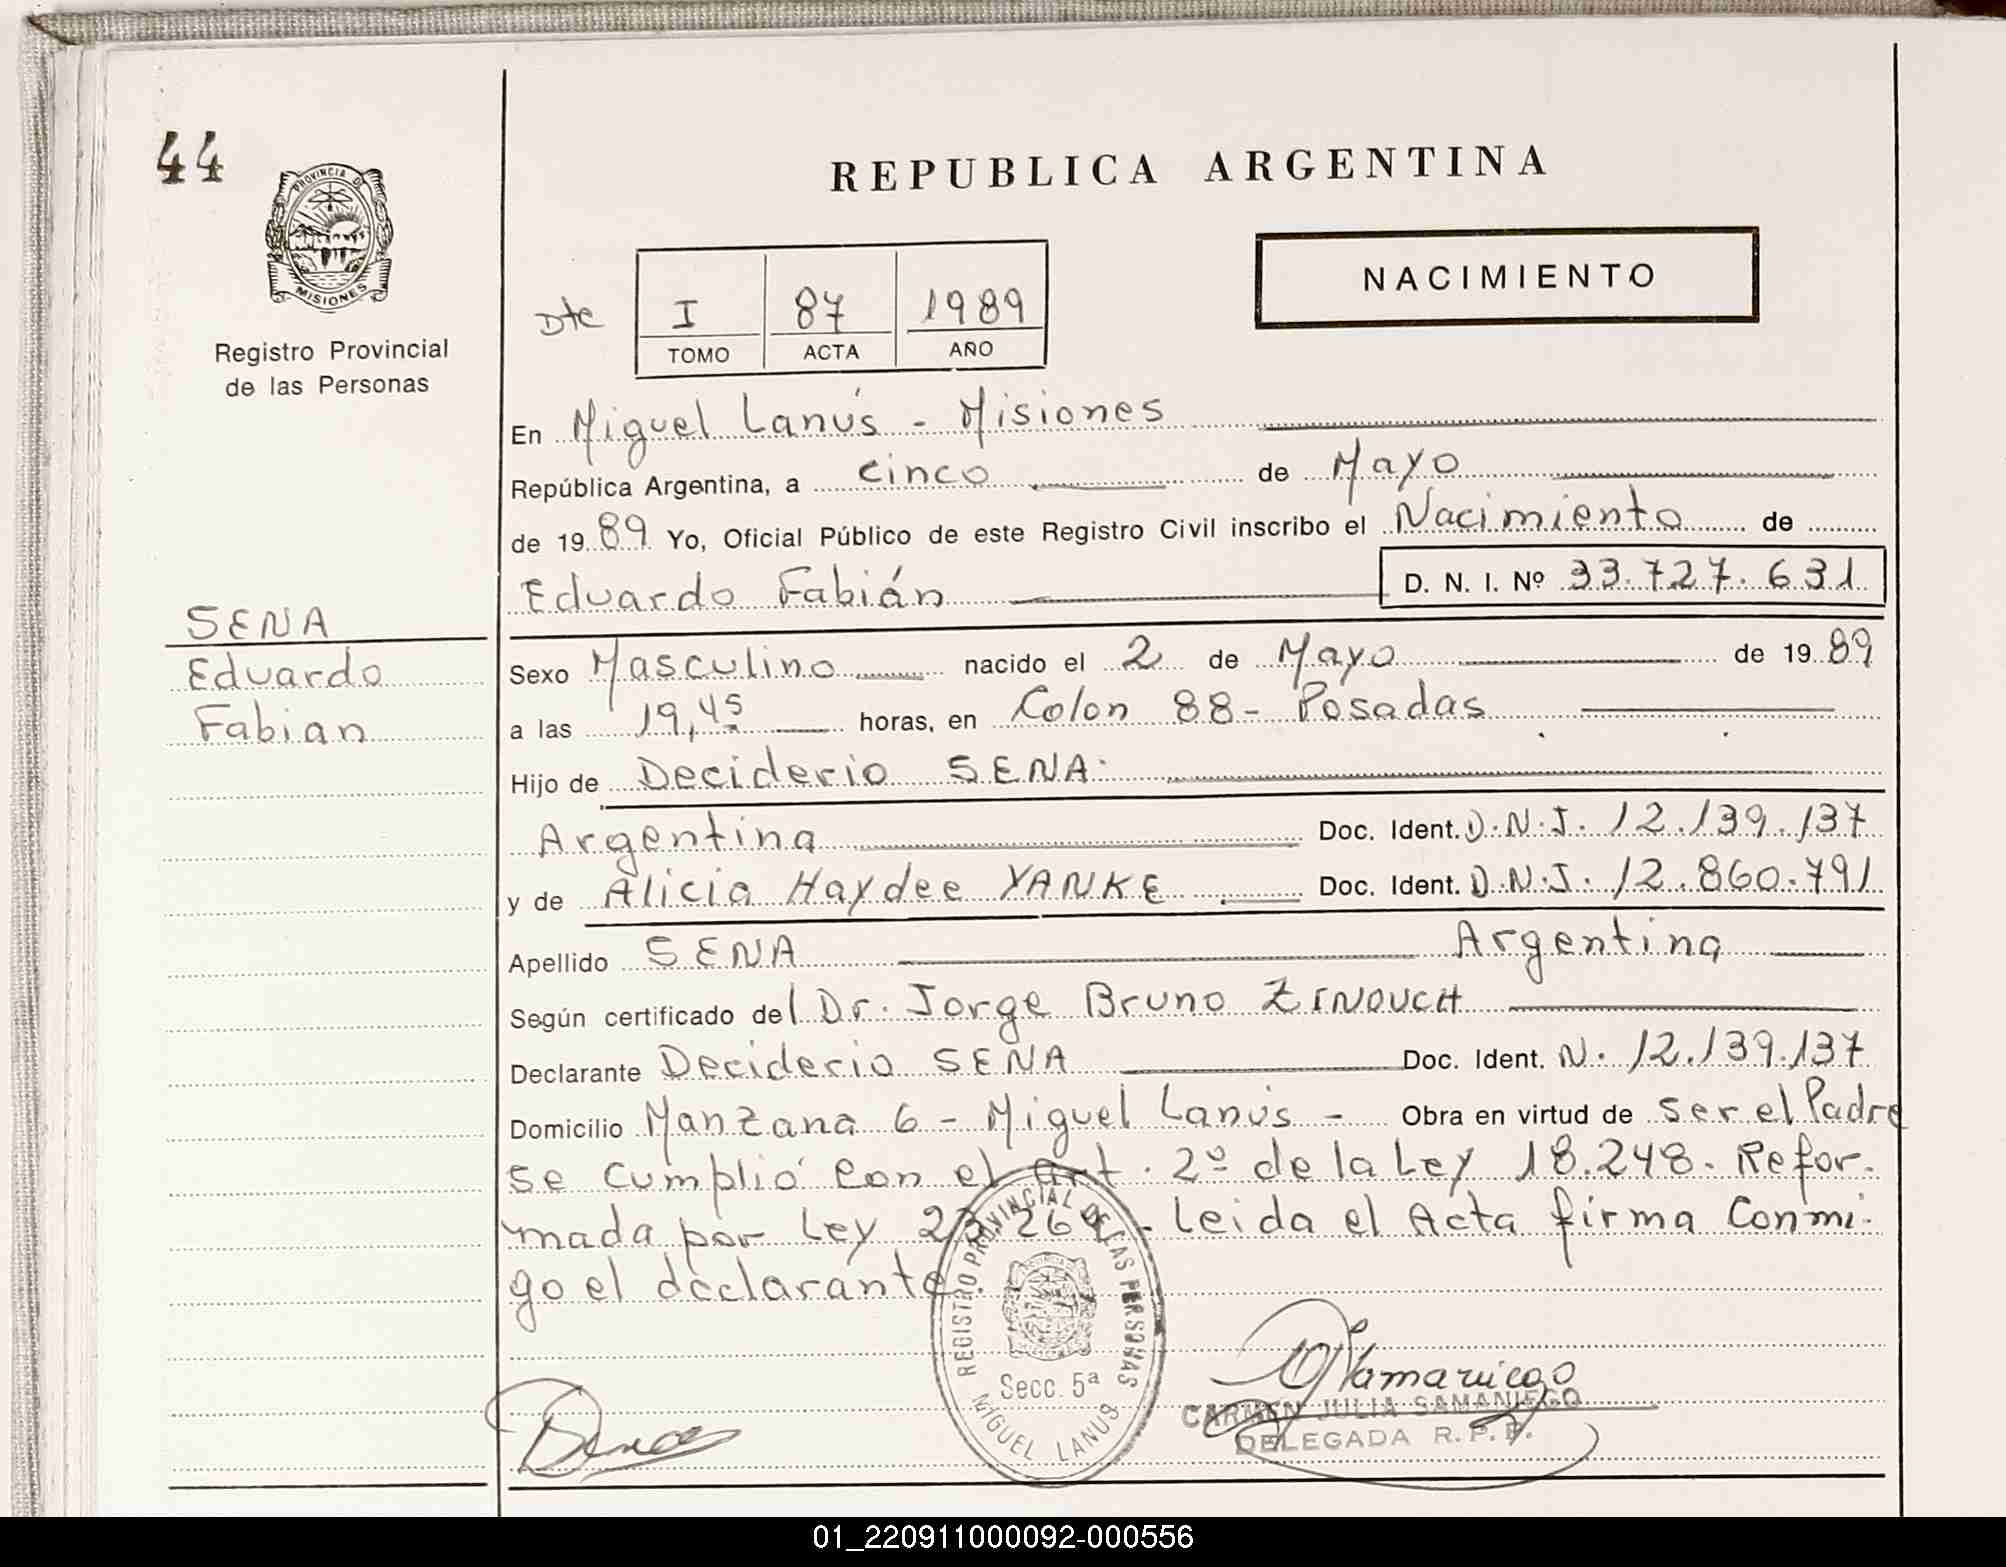 44
PROVINCIA DE
MISIONES
Registro Provincial
de las Personas
REPUBLICA ARGENTINA
NACIMIENTO
Dte I 87 1989
TOMO ACTA AÑO
En Miguel Lanús - Misiones
República Argentina, a cinco de Mayo
de 1989 Yo, Oficial Público de este Registro Civil inscribo el Nacimiento de
Eduardo Fabián D. N. I. Nº 33.727.631
SENA
Eduardo
Fabian
Sexo Masculino nacido el 2 de Mayo de 1989
a las 19,45 horas, en Colon 88 - Posadas
Hijo de Deciderio SENA
Argentina Doc. Ident. D.N.I. 12.139.137
y de Alicia Haydee YANKE Doc. Ident. D.N.I. 12.860.791
Apellido SENA Argentina
Según certificado del Dr. Jorge Bruno ZINOUCH
Declarante Deciderio SENA Doc. Ident. N. 12.139.137
Domicilio Manzana 6 - Miguel Lanús - Obra en virtud de ser el Padre
se cumplió con el art. 2º de la Ley 18.248. Refor-
mada por Ley 23.264 - Leida el Acta firma Conmi-
go el declarante.
REGISTRO PROVINCIAL DE LAS PERSONAS
Secc. 5ª
MIGUEL LANUS
CARMEN JULIA SAMANIEGO
DELEGADA R. P. P.
01_220911000092-000556